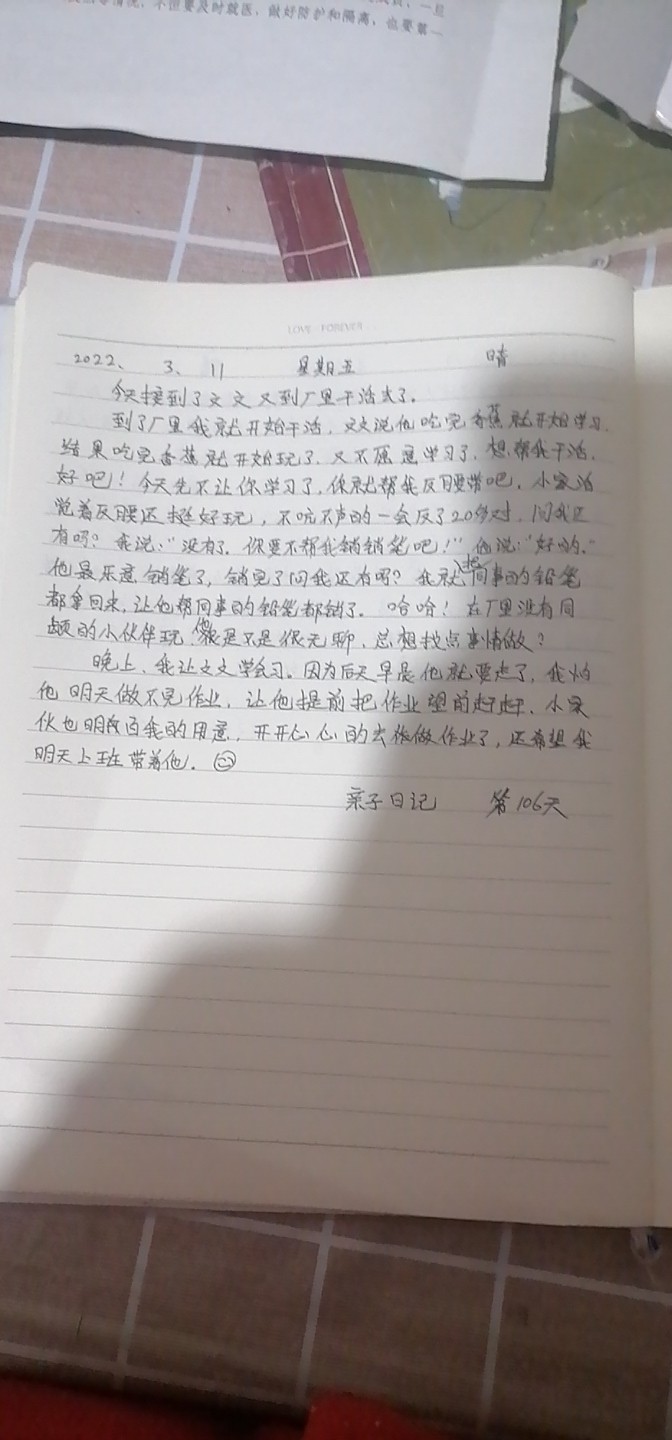 情况，不但要及时就医，做好防护和隔离，也要第一
一旦
LOVE FOREVER
2022、 3、 11 星期五 晴
今天接到了文文又到厂里干活去了。
到了厂里我就开始干活，文文说他吃完香蕉就开始学习，
结果吃完香蕉就开始玩了，又不愿意学习了，想帮我干活，
好吧！今天先不让你学习了，你就帮我反腰带吧，小家活
觉着反腰还挺好玩，不吭不声的一会反了20多对，问我还
有吗？我说："没有了，你要不帮我销销笔吧！"他说："好的。"
他最乐意销笔了，销完了问我还有吗？我就把同事的铅笔
都拿回来，让他帮同事的铅笔都销了。哈哈！在厂里没有同
龄的小伙伴玩，他是不是很无聊，总想找点事情做？
晚上、我让文文学会习。因为后天早晨他就要走了，我怕
他明天做不完作业，让他提前把作业望前赶赶、小家
伙也明白我的用意，开开心心的去做作业了，还希望我
明天上班带着他。
亲子日记 第106天